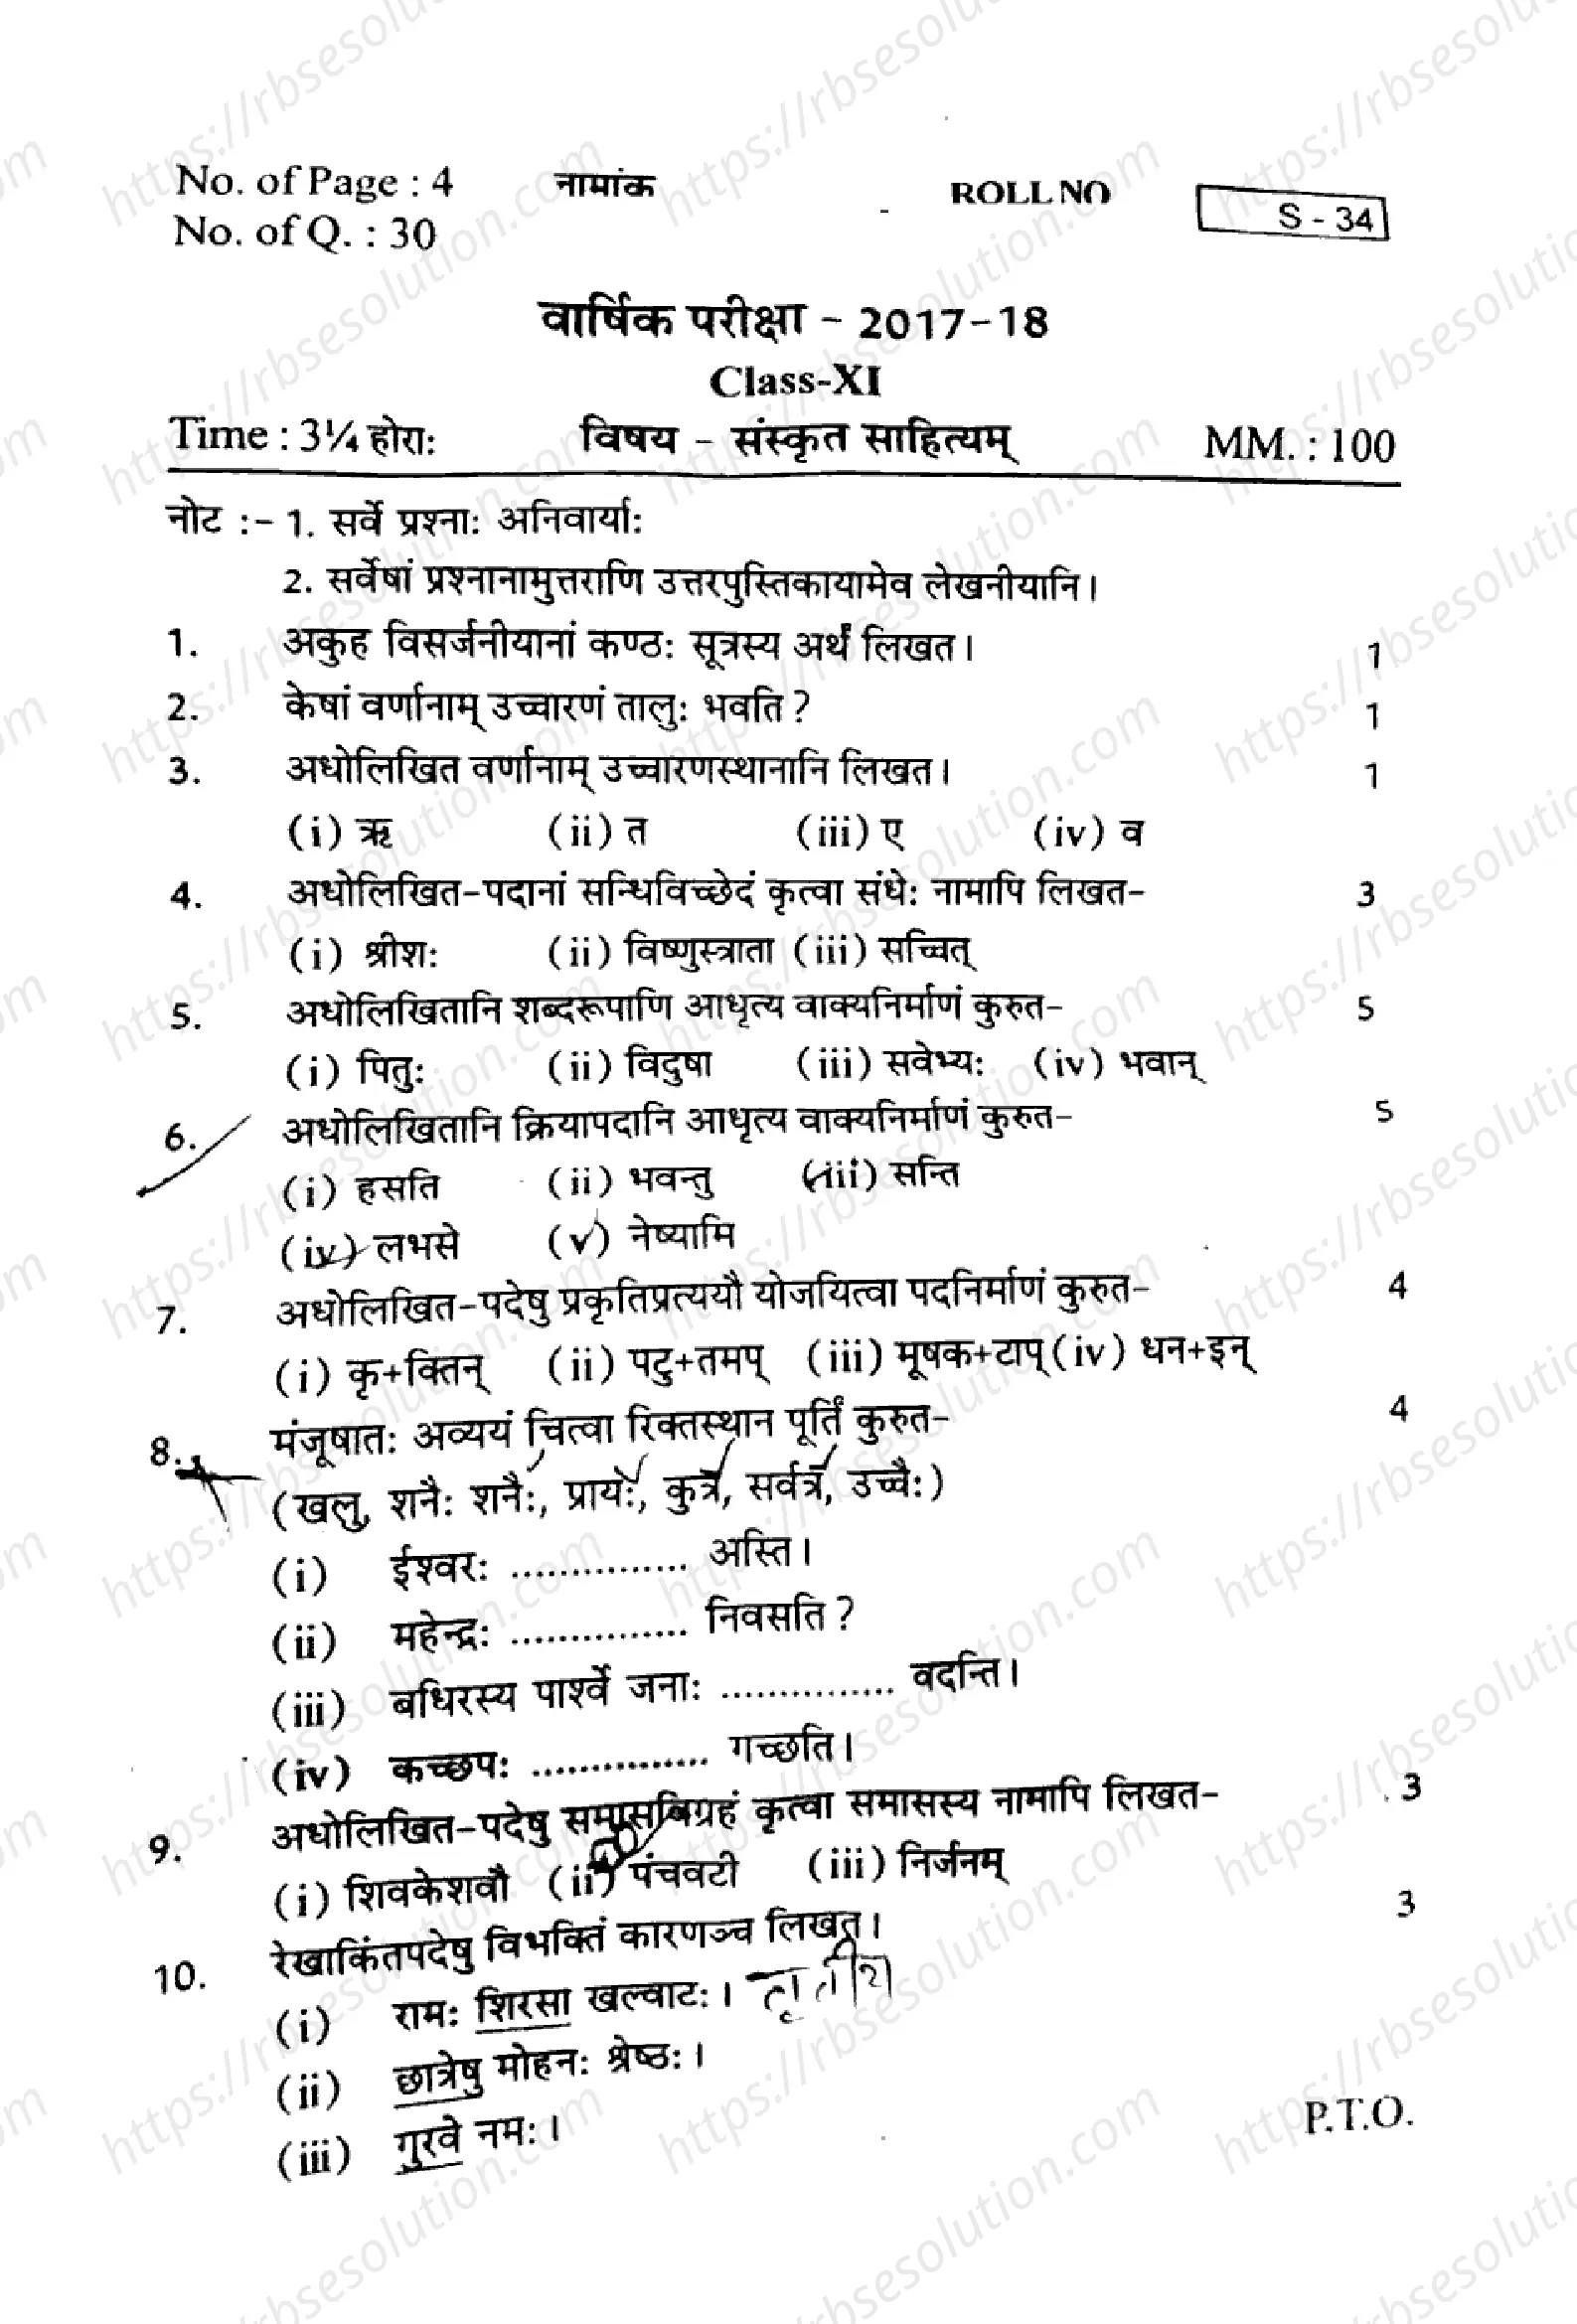 No. of Page : 4 नामांक ROLL NO S - 34
No. of Q. : 30
वार्षिक परीक्षा - 2017-18
Class-XI
Time : 3¼ होराः विषय - संस्कृत साहित्यम् MM. : 100
नोट :- 1. सर्वे प्रश्नाः अनिवार्याः
2. सर्वेषां प्रश्नानामुत्तराणि उत्तरपुस्तिकायामेव लेखनीयानि।
1. अकुह विसर्जनीयानां कण्ठः सूत्रस्य अर्थं लिखत। 1
2. केषां वर्णानाम् उच्चारणं तालुः भवति ? 1
3. अधोलिखित वर्णानाम् उच्चारणस्थानानि लिखत। 1
(i) ऋ (ii) त (iii) ए (iv) व
4. अधोलिखित-पदानां सन्धिविच्छेदं कृत्वा संधेः नामापि लिखत- 3
(i) श्रीशः (ii) विष्णुस्त्राता (iii) सच्चित्
5. अधोलिखितानि शब्दरूपाणि आधृत्य वाक्यनिर्माणं कुरुत- 5
(i) पितुः (ii) विदुषा (iii) सवेभ्यः (iv) भवान्
6. अधोलिखितानि क्रियापदानि आधृत्य वाक्यनिर्माणं कुरुत- 5
(i) हसति (ii) भवन्तु (iii) सन्ति
(iv) लभसे (v) नेष्यामि
7. अधोलिखित-पदेषु प्रकृतिप्रत्ययौ योजयित्वा पदनिर्माणं कुरुत- 4
(i) कृ+क्तिन् (ii) पटु+तमप् (iii) मूषक+टाप् (iv) धन+इन्
8. मंजूषातः अव्ययं चित्वा रिक्तस्थान पूर्तिं कुरुत- 4
(खलु, शनैः शनैः, प्रायः, कुत्र, सर्वत्र, उच्चैः)
(i) ईश्वरः ............... अस्ति।
(ii) महेन्द्रः ............... निवसति ?
(iii) बधिरस्य पार्श्वे जनाः ............... वदन्ति।
(iv) कच्छपः ............... गच्छति।
9. अधोलिखित-पदेषु समासविग्रहं कृत्वा समासस्य नामापि लिखत- 3
(i) शिवकेशवौ (ii) पंचवटी (iii) निर्जनम्
10. रेखाकिंतपदेषु विभक्तिं कारणञ्च लिखत। 3
(i) रामः शिरसा खल्वाटः। तृतीय
(ii) छात्रेषु मोहनः श्रेष्ठः।
(iii) गुरवे नमः।
P.T.O.
https://rbsesolution.com